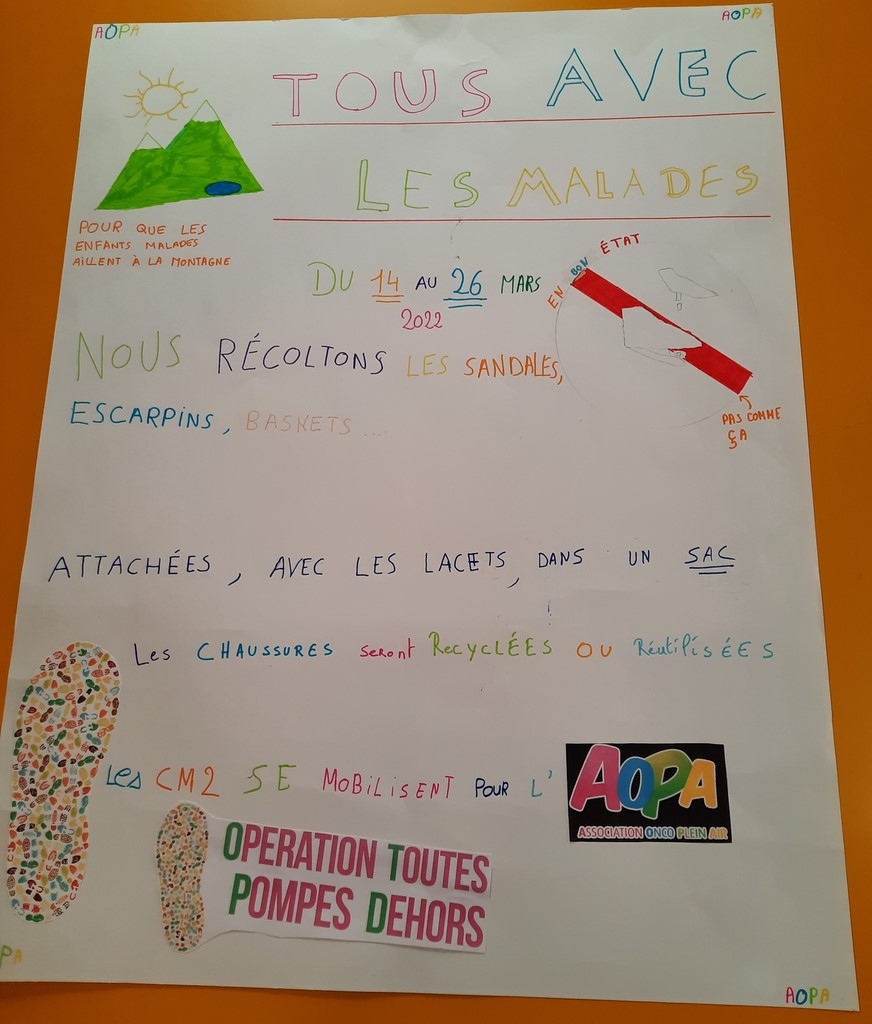 AOPA
AOPA
TOUS AVEC
LES MALADES
POUR QUE LES
ENFANTS MALADES
AILLENT À LA MONTAGNE
DU 14 AU 26 MARS
2022
EN BON ÉTAT
NOUS RÉCOLTONS LES SANDALES,
ESCARPINS, BASKETS...
PAS COMME
ÇA
ATTACHÉES, AVEC LES LACETS, DANS UN SAC
Les CHAUSSURES seront RecyCLÉES OU RéutilisÉES
Les CM2 SE MOBILISENT POUR L'
AOPA
ASSOCIATION ONCO PLEIN AIR
OPERATION TOUTES
POMPES DEHORS
PA
AOPA